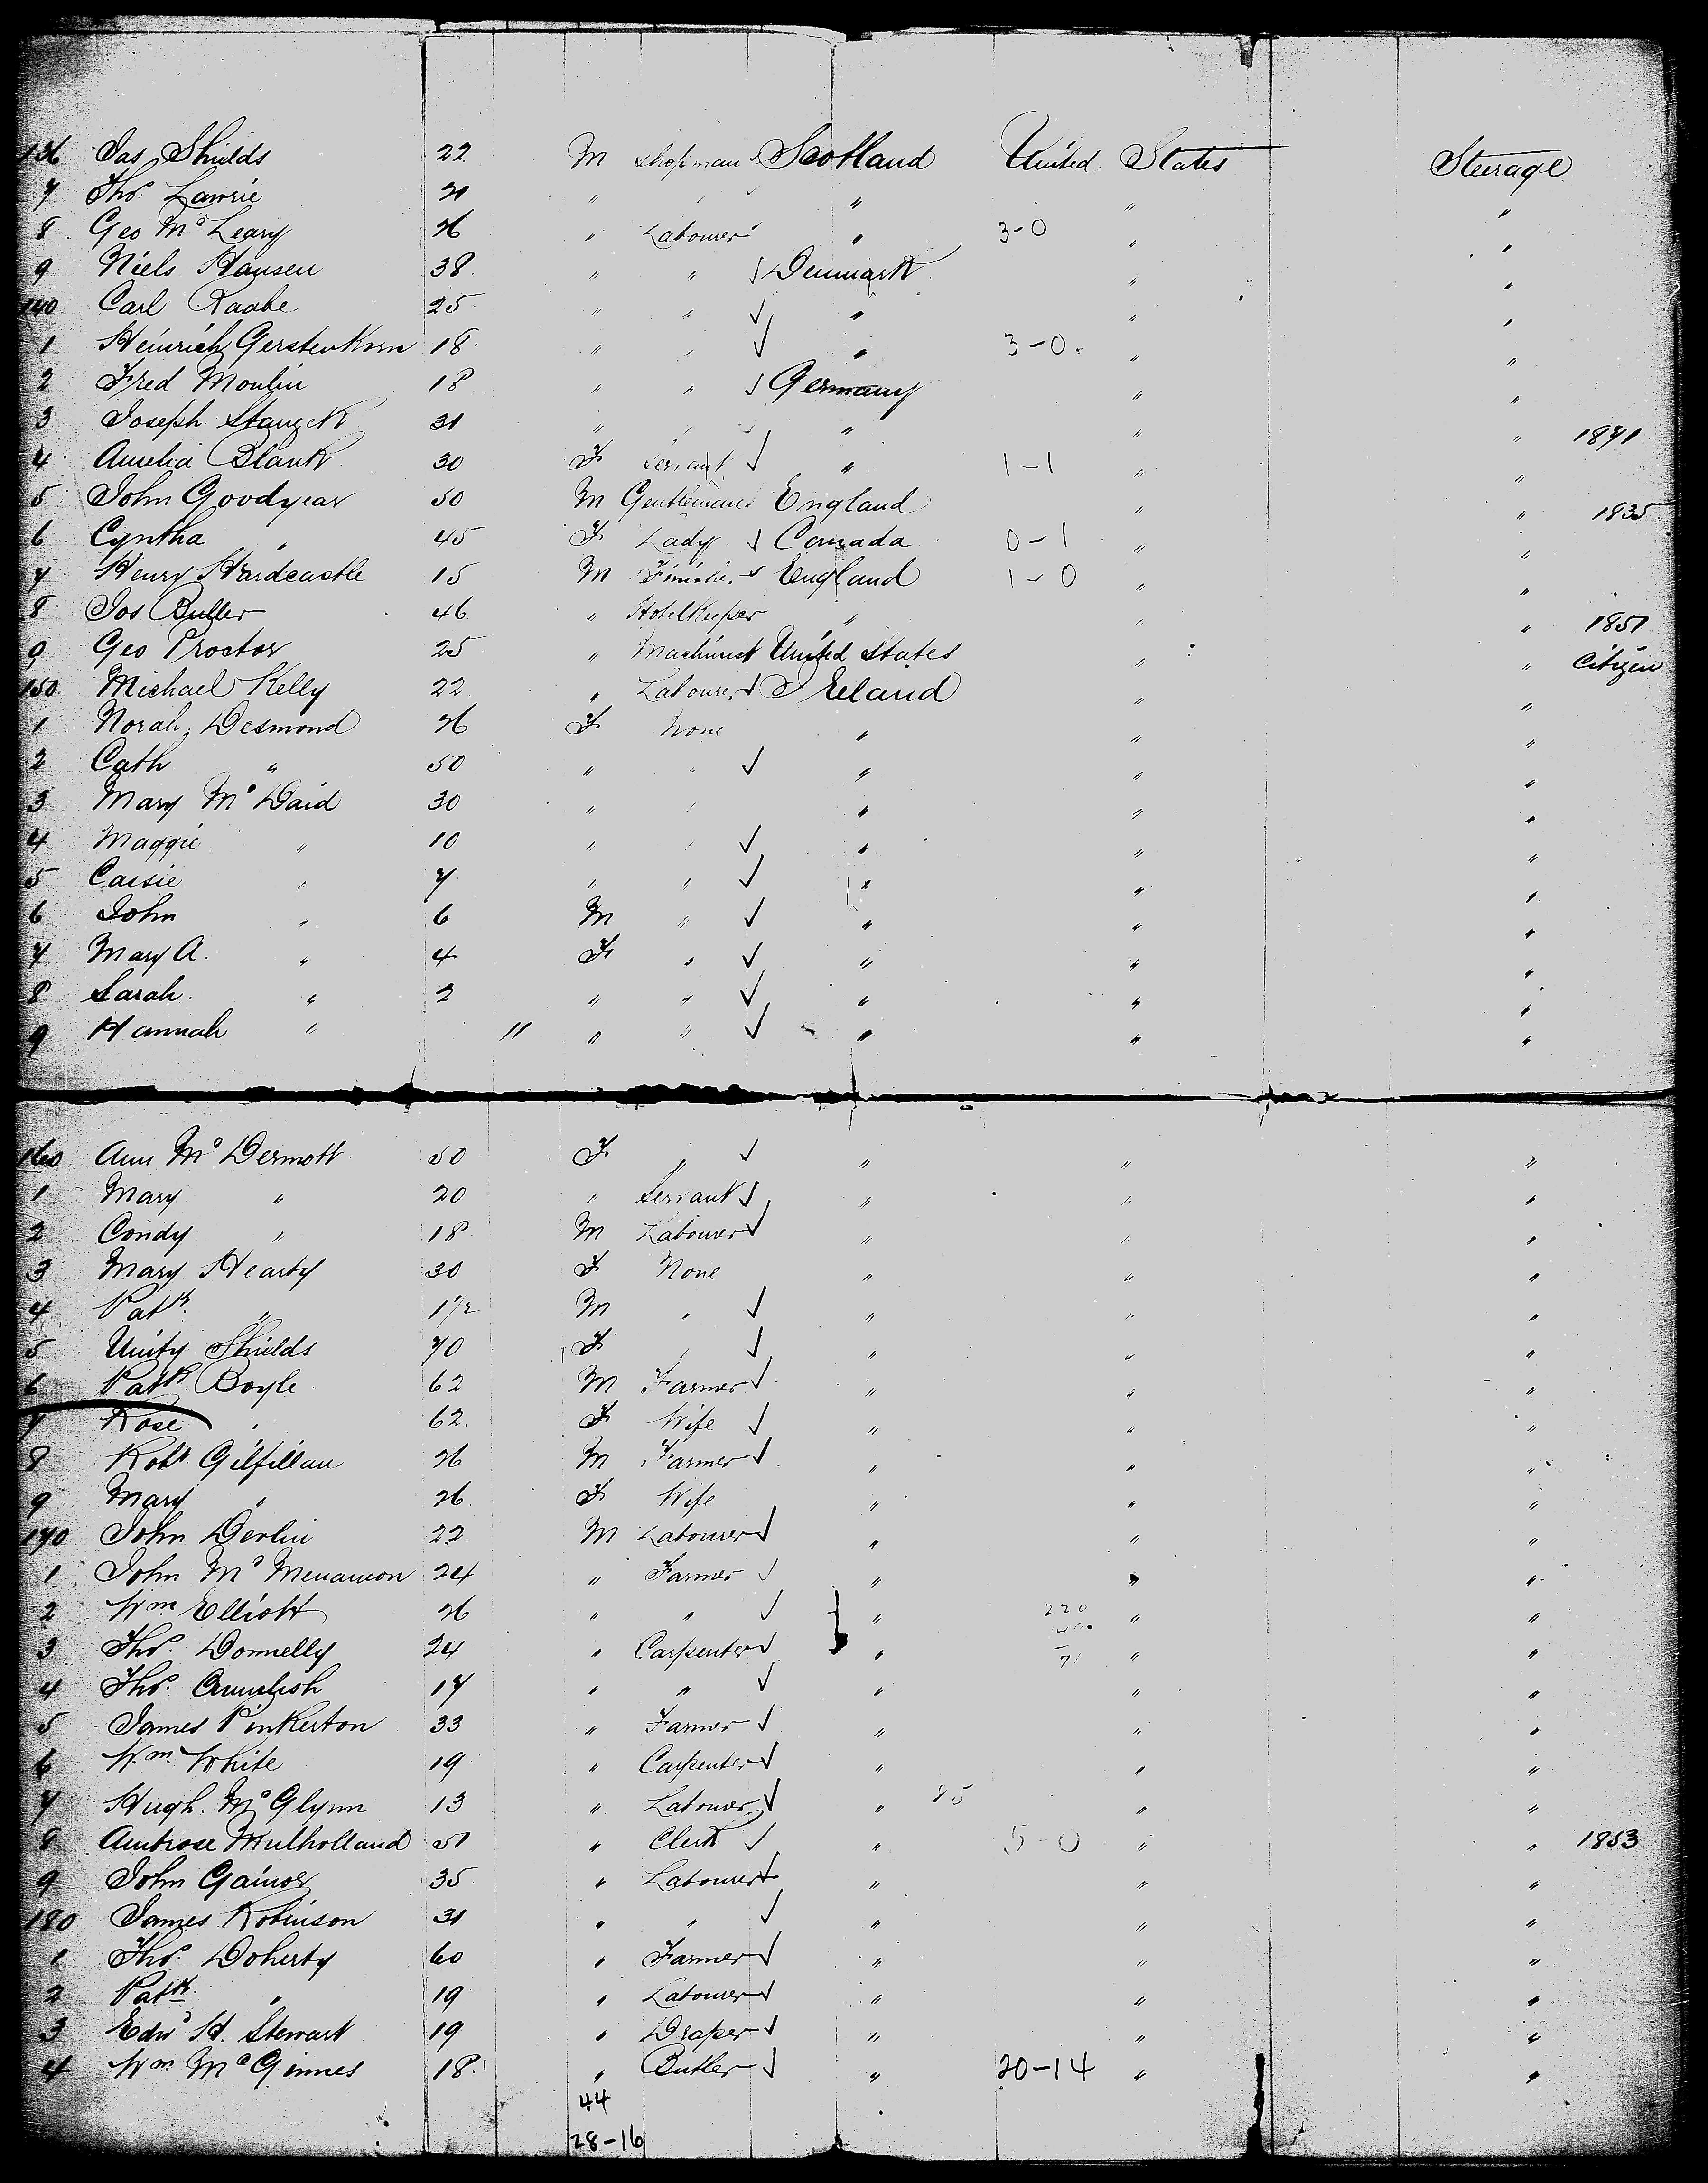 136 Jas Shields 22 M Shopman Scotland United States Steerage
7 Thos Lawrie 21 " " " " "
8 Geo McLeary 26 " Labourer " 3-0 " "
9 Niels Hansen 38 " " Denmark " "
140 Carl Raabe 25 " " " " "
1 Heinrich Gerstenkorn 18 " " " 3-0 " "
2 Fred Moulin 18 " " Germany " "
3 Joseph 31 " " " " " 1871
4 Amelia Blank 30 F Servant " 1-1 " "
5 John Goodyear 50 M Gentleman England " " 1835
6 Cyntha " 45 F Lady Canada 0-1 " "
7 Henry Hardcastle 15 M England 1-0 " "
8 Jos Butler 46 " Hotelkeeper " " " 1851
9 Geo Proctor 25 " Machinist United States " " Citizen
150 Michael Kelly 22 " Labourer Ireland " "
1 Norah Desmond 26 F None " " "
2 Cath " 50 " " " " "
3 Mary McDaid 30 " " " " "
4 Maggie " 10 " " " " "
5 Cassie " 7 " " " " "
6 John " 6 M " " " "
7 Mary A. " 4 F " " " "
8 Sarah " 2 " " " " "
9 Hannah " 11 " " " " "
160 Ann McDermott 50 F " " " "
1 Mary " 20 " Servant " " "
2 Condy " 18 M Labourer " " "
3 Mary Hearty 30 F None " " "
4 Patk " 1 1/2 M " " " "
5 Unity Shields 70 F " " " "
6 Patk Boyle 62 M Farmer " " "
7 Rose " 62 F Wife " " "
8 Robt Gilfillan 26 M Farmer " " "
9 Mary " 26 F Wife " " "
170 John Devlin 22 M Labourer " " "
1 John McMenamon 24 " Farmer " " "
2 Wm Elliott 26 " " " 220 " "
3 Thos Donnelly 24 " Carpenter " " "
4 Thos 17 " " " " "
5 James Pinkerton 33 " Farmer " " "
6 Wm White 19 " Carpenter " " "
7 Hugh McGlynn 13 " Labourer " 85 " "
8 Ambrose Mulholland 51 " Clerk " 5 0 " " 1853
9 John Gainor 35 " Labourer " " "
180 James Robinson 31 " " " " "
1 Thos Doherty 60 " Farmer " " "
2 Patk " 19 " Labourer " " "
3 Edwd H. Stewart 19 " Draper " " "
4 Wm McGinnes 18 " Butler " 20-14 " "
44
28-16